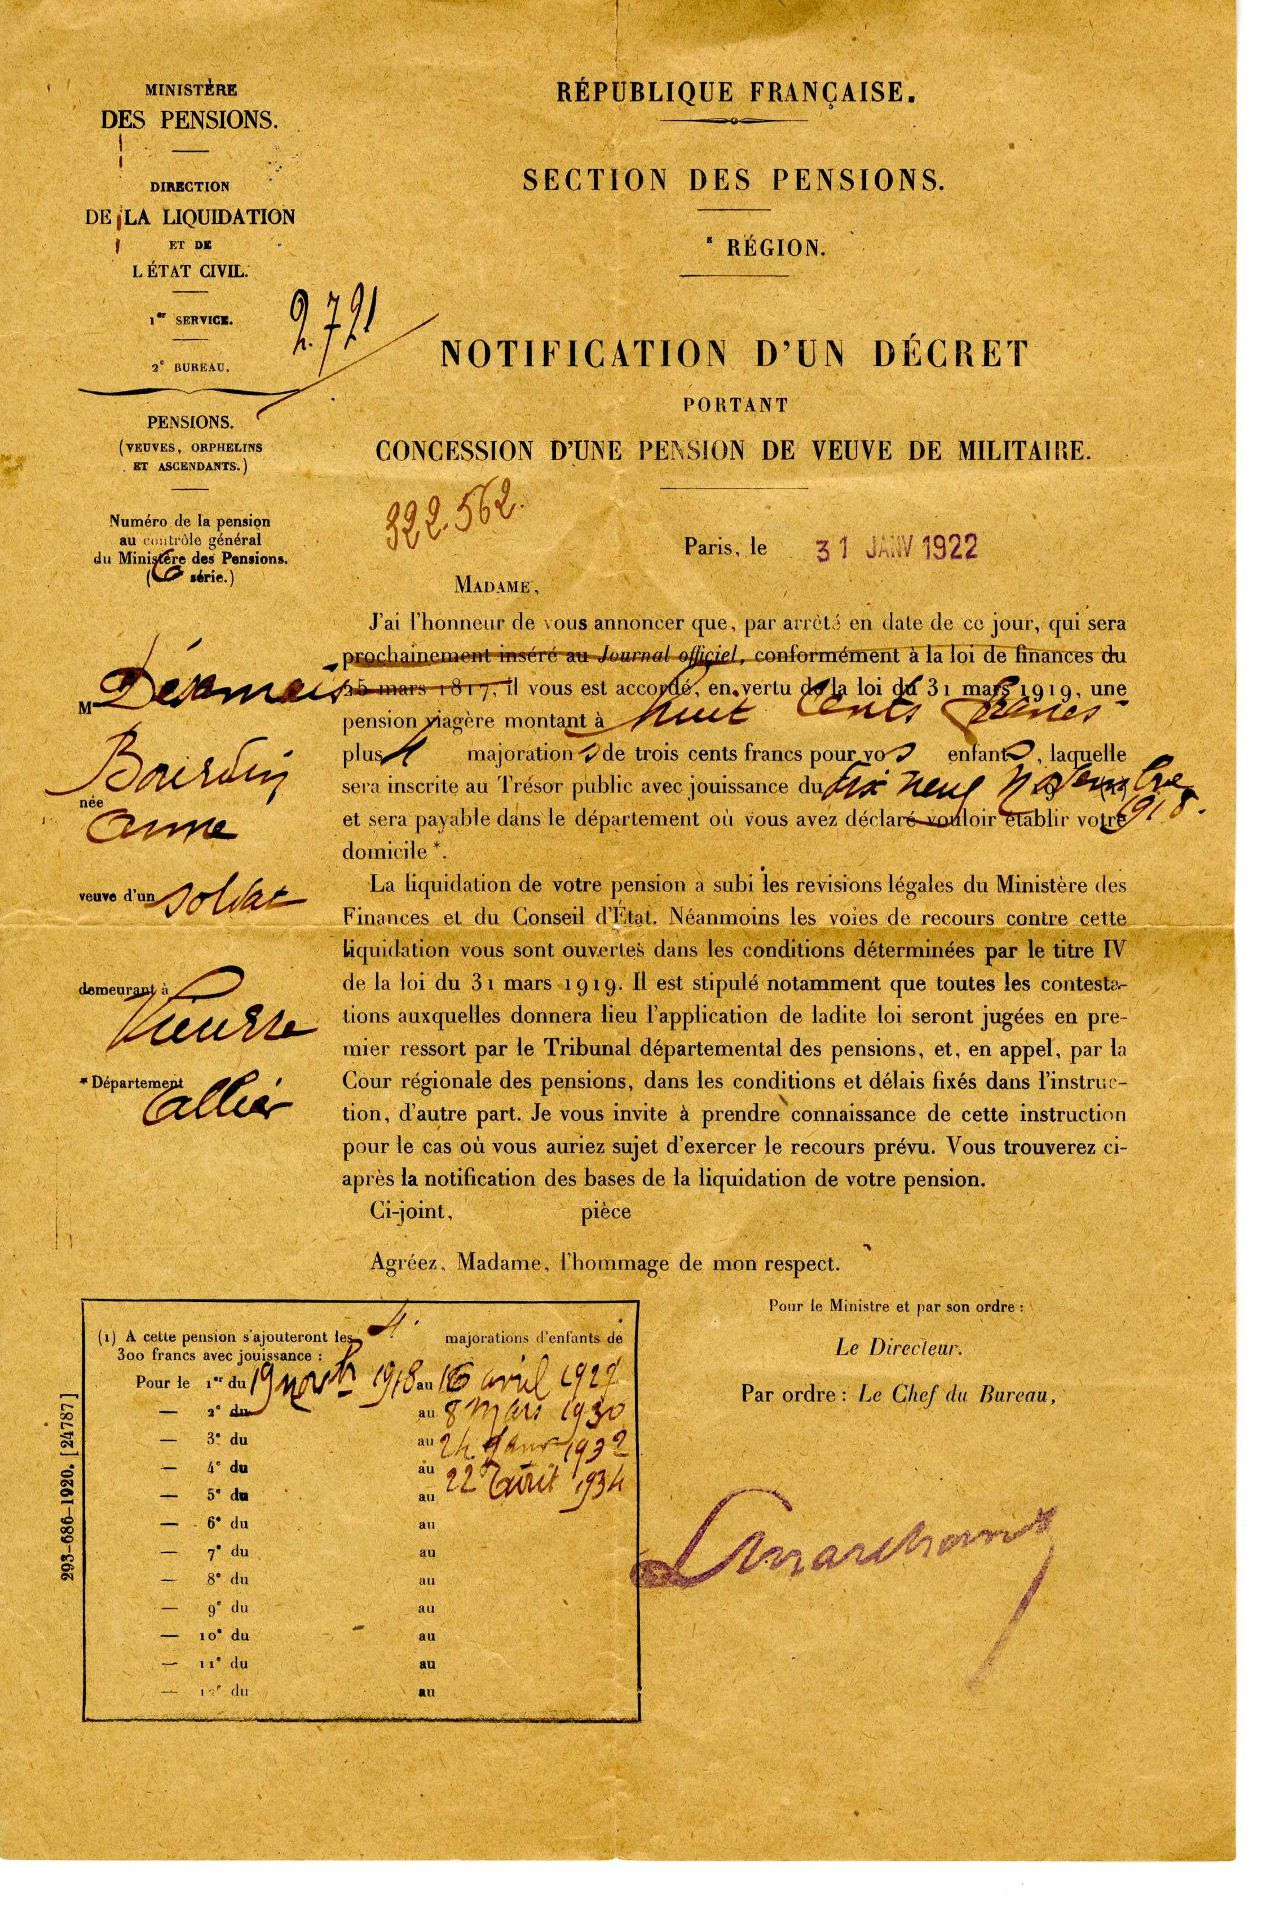 MINISTÈRE
DES PENSIONS.
DIRECTION
DE LA LIQUIDATION
ET DE
L'ÉTAT CIVIL.
1er SERVICE.
2e BUREAU.
2.721
PENSIONS.
(VEUVES, ORPHELINS
ET ASCENDANTS.)
Numéro de la pension
au contrôle général
du Ministère des Pensions.
(6 série.)
M Désamais
née
Anne
veuve d'un soldat
demeurant à
Vieure
* Département
Allier
RÉPUBLIQUE FRANÇAISE.
SECTION DES PENSIONS.
E RÉGION.
NOTIFICATION D'UN DÉCRET
PORTANT
CONCESSION D'UNE PENSION DE VEUVE DE MILITAIRE.
322.562.
Paris, le 31 JANV 1922
MADAME,
J'ai l'honneur de vous annoncer que, par arrêté en date de ce jour, qui sera
prochainement inséré au Journal officiel, conformément à la loi de finances du
25 mars 1817, il vous est accordé, en vertu de la loi du 31 mars 1919, une
pension viagère montant à huit cents francs
plus 4 majorations de trois cents francs pour vos enfants, laquelle
sera inscrite au Trésor public avec jouissance du dix neuf Novembre
1918.
et sera payable dans le département où vous avez déclaré vouloir établir votre
domicile *.
La liquidation de votre pension a subi les revisions légales du Ministère des
Finances et du Conseil d'État. Néanmoins les voies de recours contre cette
liquidation vous sont ouvertes dans les conditions déterminées par le titre IV
de la loi du 31 mars 1919. Il est stipulé notamment que toutes les contesta-
tions auxquelles donnera lieu l'application de ladite loi seront jugées en pre-
mier ressort par le Tribunal départemental des pensions, et, en appel, par la
Cour régionale des pensions, dans les conditions et délais fixés dans l'instruc-
tion, d'autre part. Je vous invite à prendre connaissance de cette instruction
pour le cas où vous auriez sujet d'exercer le recours prévu. Vous trouverez ci-
après la notification des bases de la liquidation de votre pension.
Ci-joint, pièce
Agréez, Madame, l'hommage de mon respect.
Pour le Ministre et par son ordre :
Le Directeur.
Par ordre : Le Chef du Bureau,
(1) A cette pension s'ajouteront les 4 majorations d'enfants de
300 francs avec jouissance :
Pour le 1er du 19 novbre 1918 au 16 avril 1927
— 2e du au 8 Mars 1930
— 3e du au 24 Janv 1932
— 4e du au 22 Avril 1934
— 5e du au
— 6e du au
— 7e du au
— 8e du au
— 9e du au
— 10e du au
— 11e du au
— 12e du au
293-686-1920. [24787]